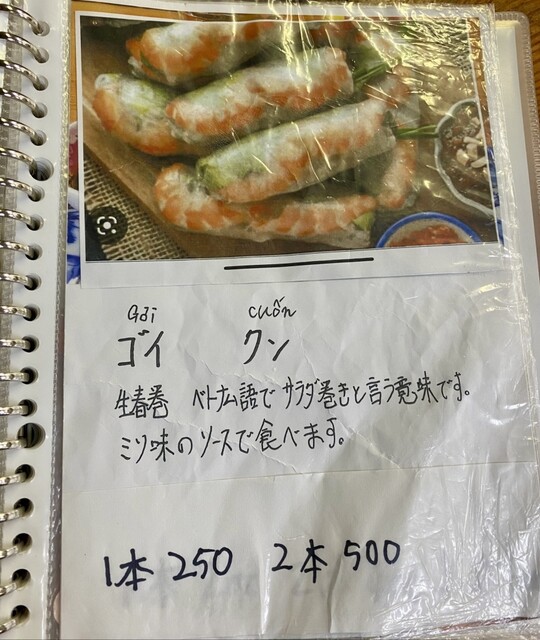 Gỏi cuốn
ゴイ クン
生春巻 ベトナム語でサラダ巻きと言う意味です。
ミソ味のソースで食べます。
1本 250 2本 500